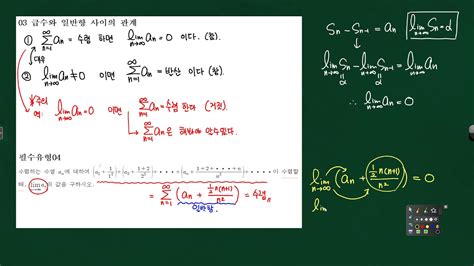 03 급수와 일반항 사이의 관계
① ∑_{n=1}^{∞} aₙ = 수렴 하면 lim_{n→∞} aₙ = 0 이다. (참).
대우
② lim_{n→∞} aₙ ≠ 0 이면 ∑_{n=1}^{∞} aₙ = 발산 이다 (참).
※주의
역: lim_{n→∞} aₙ = 0 이면 ∑_{n=1}^{∞} aₙ = 수렴 한다 (거짓).
→ ∑_{n=1}^{∞} aₙ 은 해봐야 안다.
필수유형04
수렴하는 수열 aₙ에 대하여 (a₁ + 1/1²) + (a₂ + (1+2)/2²) + ⋯ + (aₙ + (1+2+⋯+n)/n²) + ⋯ 이 수렴할 때,
lim aₙ의 값을 구하시오.
= ∑_{n=1}^{∞} (aₙ + ½n(n+1)/n²) = 수렴
일반항
Sₙ − Sₙ₋₁ = aₙ
lim_{n→∞} Sₙ = α
lim_{n→∞} Sₙ − lim_{n→∞} Sₙ₋₁ = lim_{n→∞} aₙ
α α
∴ lim_{n→∞} aₙ = 0
lim_{n→∞} (aₙ + ½n(n+1)/n²) = 0
lim